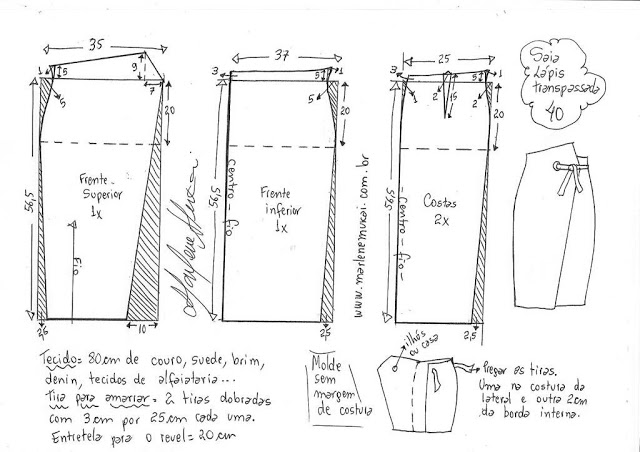 35
1
5
9
7
5
20
56,5
Frente
Superior
1x
Fio
2,5
10
37
3
5
1
5
20
56,5
centro - fio
Frente
inferior
1x
2,5
www.marlenemukai.com.br
25
1
2
15
2
5
1
20
56,5
Centro - fio
Costas
2x
2,5
Saia
Lápis
transpassada
40
Tecido= 80cm de couro, suede, brim,
denin, tecidos de alfaiataria...
Tira para amarrar= 2 tiras dobradas
com 3cm por 25cm cada uma.
Entretela para o revel= 20cm
Molde
sem
margem
de costura
ilhós
ou casa
Pregar as tiras.
Uma na costura da
lateral e outra 2cm
da borda interna.